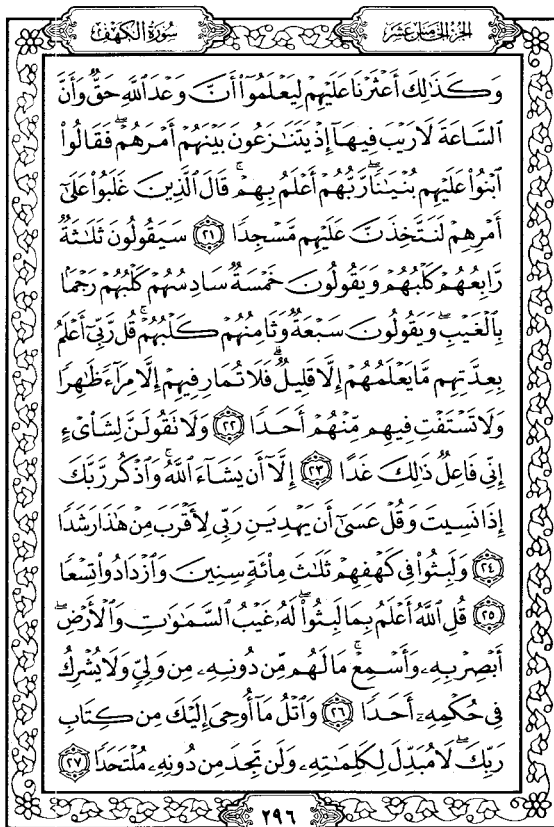 الجزء الخامس عشر
سورة الكهف
وَكَذَٰلِكَ أَعْثَرْنَا عَلَيْهِمْ لِيَعْلَمُوٓا۟ أَنَّ وَعْدَ ٱللَّهِ حَقٌّ وَأَنَّ
ٱلسَّاعَةَ لَا رَيْبَ فِيهَآ إِذْ يَتَنَٰزَعُونَ بَيْنَهُمْ أَمْرَهُمْ ۖ فَقَالُوا۟
ٱبْنُوا۟ عَلَيْهِم بُنْيَٰنًا ۖ رَّبُّهُمْ أَعْلَمُ بِهِمْ ۚ قَالَ ٱلَّذِينَ غَلَبُوا۟ عَلَىٰٓ
أَمْرِهِمْ لَنَتَّخِذَنَّ عَلَيْهِم مَّسْجِدًا ۝٢١ سَيَقُولُونَ ثَلَٰثَةٌ
رَّابِعُهُمْ كَلْبُهُمْ وَيَقُولُونَ خَمْسَةٌ سَادِسُهُمْ كَلْبُهُمْ رَجْمًۢا
بِٱلْغَيْبِ ۖ وَيَقُولُونَ سَبْعَةٌ وَثَامِنُهُمْ كَلْبُهُمْ ۚ قُل رَّبِّىٓ أَعْلَمُ
بِعِدَّتِهِم مَّا يَعْلَمُهُمْ إِلَّا قَلِيلٌ ۗ فَلَا تُمَارِ فِيهِمْ إِلَّا مِرَآءً ظَٰهِرًا
وَلَا تَسْتَفْتِ فِيهِم مِّنْهُمْ أَحَدًا ۝٢٢ وَلَا تَقُولَنَّ لِشَا۟ىْءٍ
إِنِّى فَاعِلٌ ذَٰلِكَ غَدًا ۝٢٣ إِلَّآ أَن يَشَآءَ ٱللَّهُ ۚ وَٱذْكُر رَّبَّكَ
إِذَا نَسِيتَ وَقُلْ عَسَىٰٓ أَن يَهْدِيَنِ رَبِّى لِأَقْرَبَ مِنْ هَٰذَا رَشَدًا
۝٢٤ وَلَبِثُوا۟ فِى كَهْفِهِمْ ثَلَٰثَ مِا۟ئَةٍ سِنِينَ وَٱزْدَادُوا۟ تِسْعًا
۝٢٥ قُلِ ٱللَّهُ أَعْلَمُ بِمَا لَبِثُوا۟ ۖ لَهُۥ غَيْبُ ٱلسَّمَٰوَٰتِ وَٱلْأَرْضِ ۖ
أَبْصِرْ بِهِۦ وَأَسْمِعْ ۚ مَا لَهُم مِّن دُونِهِۦ مِن وَلِىٍّ وَلَا يُشْرِكُ
فِى حُكْمِهِۦٓ أَحَدًا ۝٢٦ وَٱتْلُ مَآ أُوحِىَ إِلَيْكَ مِن كِتَابِ
رَبِّكَ ۖ لَا مُبَدِّلَ لِكَلِمَٰتِهِۦ وَلَن تَجِدَ مِن دُونِهِۦ مُلْتَحَدًا ۝٢٧
٢٩٦